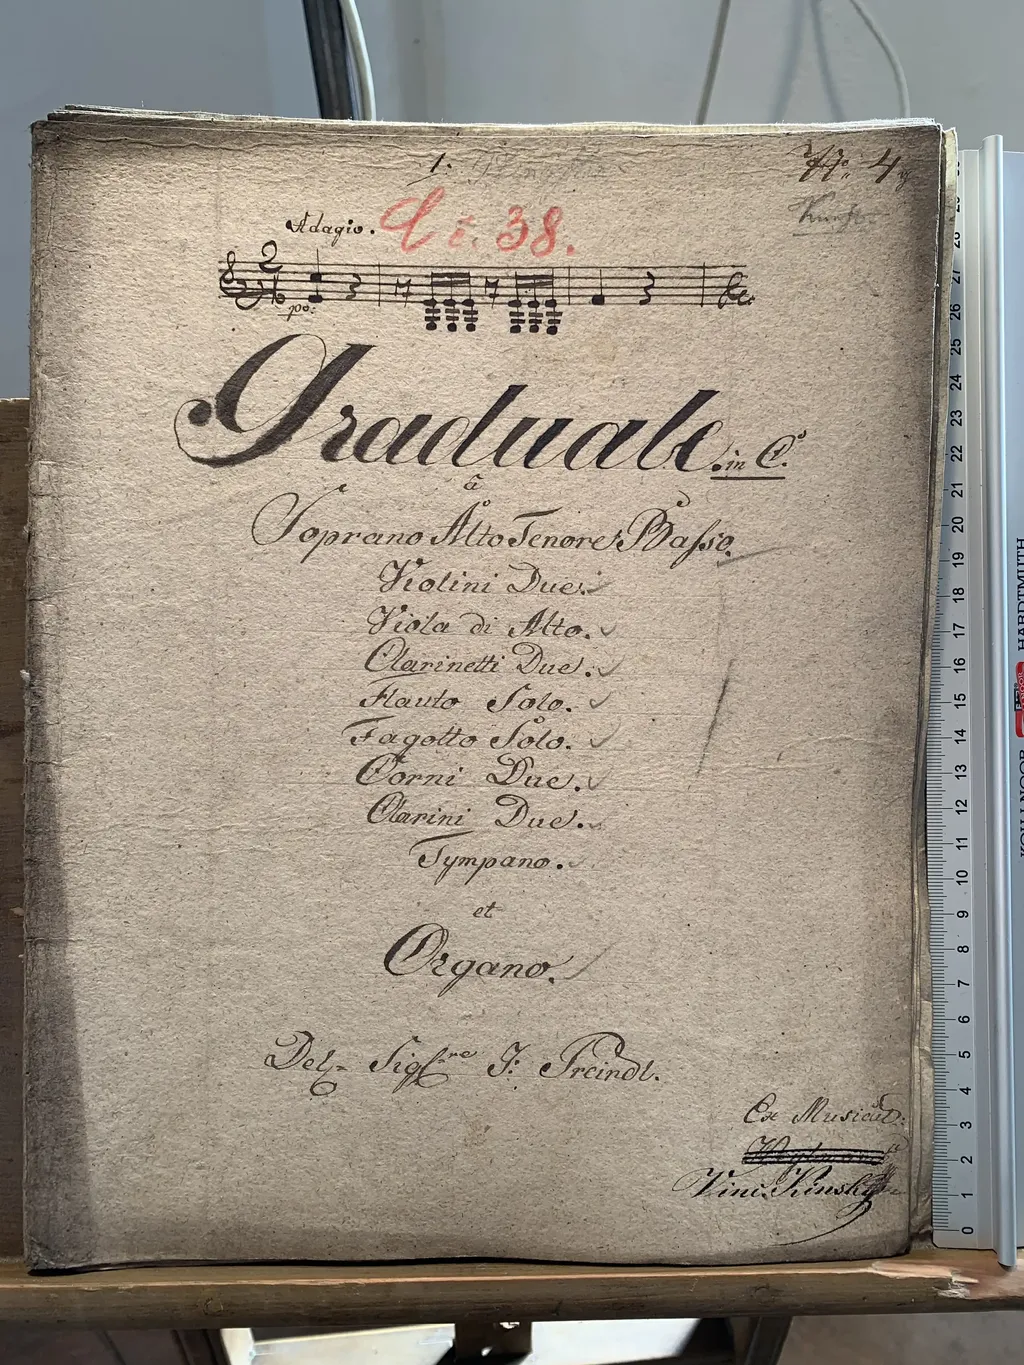 1.
No. 4
Adagio.
č. 38.
po:
Graduale. in C.
à
Soprano Alto Tenore Basso.
Violini Due.
Viola di Alto.
Clarinetti Due.
Flauto Solo.
Fagotto Solo.
Corni Due.
Clarini Due.
Tympano.
et
Organo.
Del Sigre J: Preindl.
Ex Musical:
Vinc. Kinsky
29
28
27
26
25
24
23
22
21
20
19
18
17
16
15
14
13
12
11
10
9
8
7
6
5
4
3
2
1
0
HARDTMUTH
KOH-I-NOOR